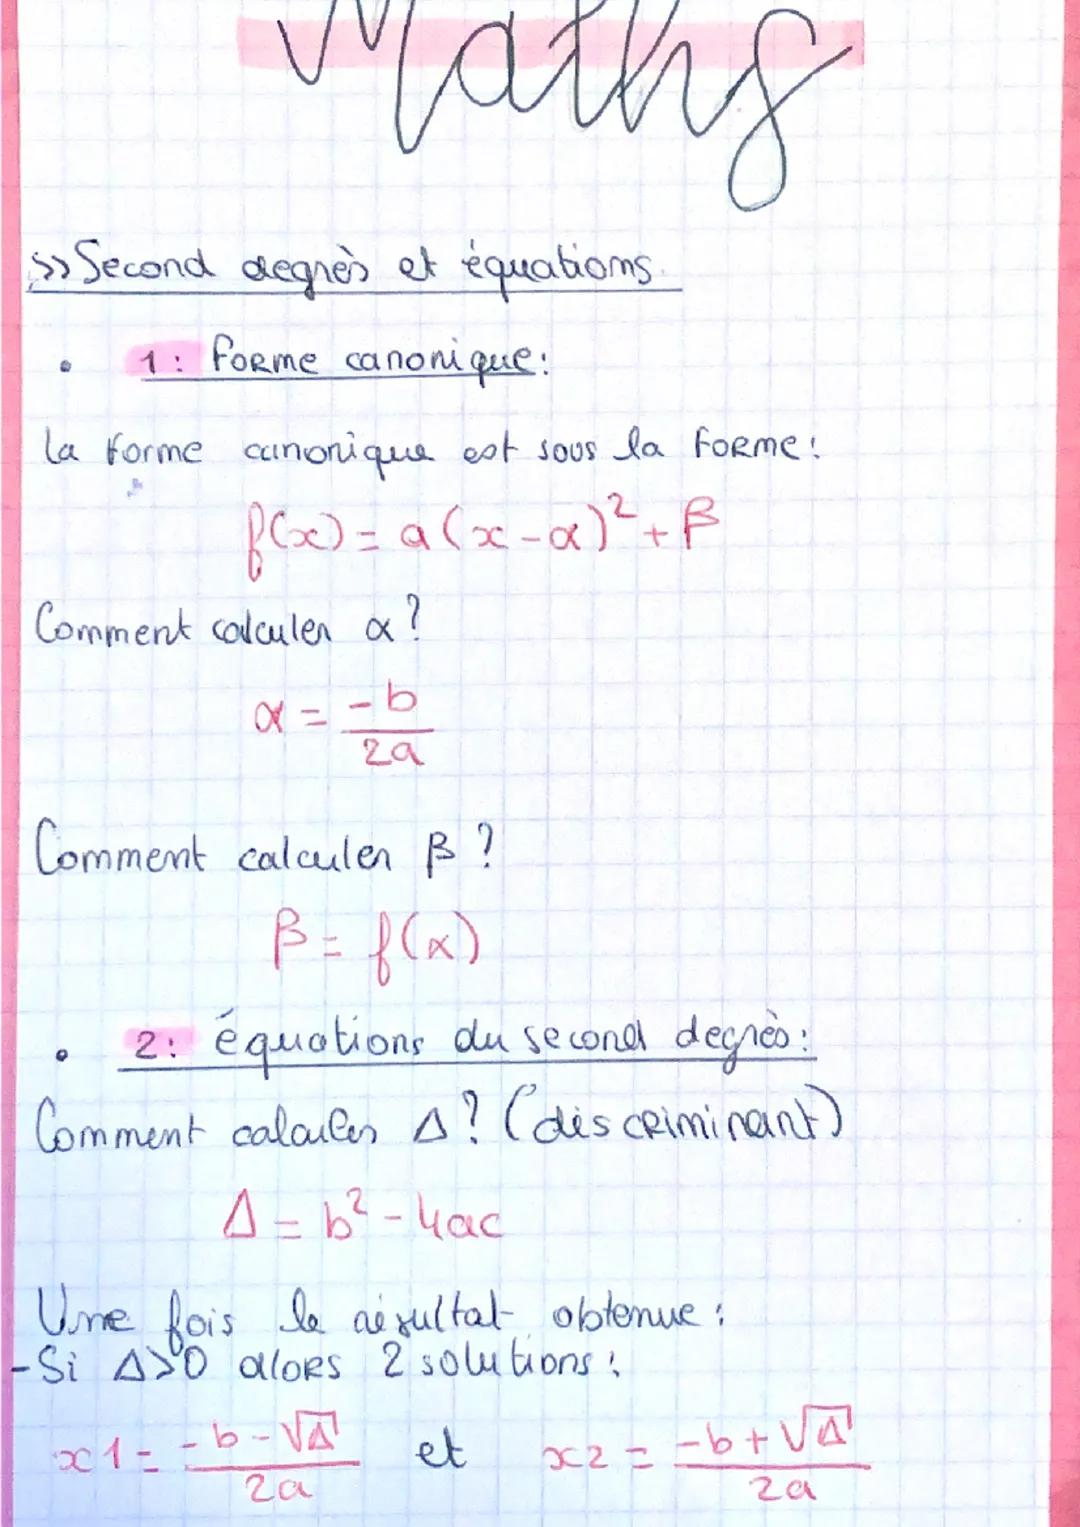 Maths
>> Second degrès et équations
• 1: Forme canonique:
la forme canonique est sous la forme:
f(x) = a(x-α)² + β
Comment calculer α?
α = -b/2a
Comment calculer β ?
β = f(α)
• 2: équations du second degrès:
Comment calculer Δ? (discriminant)
Δ = b² - 4ac
Une fois le résultat obtenue :
- Si Δ>0 alors 2 solutions :
x1 = -b-√Δ/2a et x2 = -b+√Δ/2a